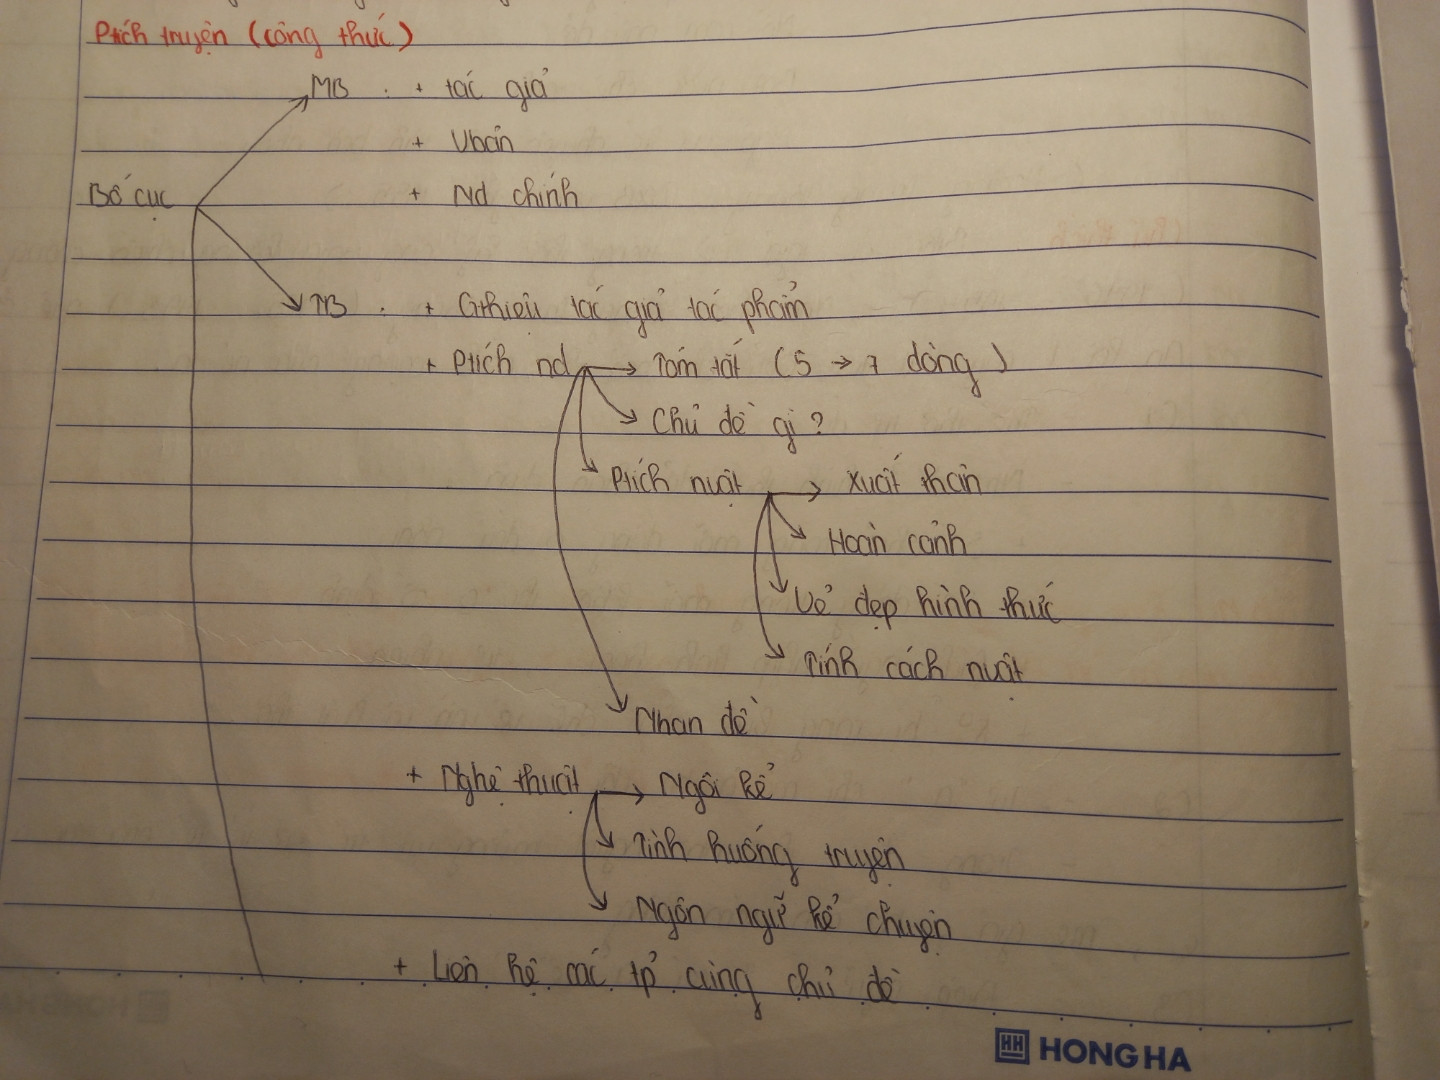 Ptích truyện (công thức)
MB : + tác giả
+ Vbản
Bố cục + Nd chính
TB : + Gthiệu tác giả tác phẩm
+ Ptích nd → Tóm tắt (5 → 7 dòng)
Chủ đề gì?
Ptích nvật → Xuất thân
Hoàn cảnh
Vẻ đẹp hình thức
Tính cách nvật
Nhan đề
+ Nghệ thuật → Ngôi kể
Tình huống truyện
Ngôn ngữ kể chuyện
+ Liên hệ các tp' cùng chủ đề
HH HONG HA